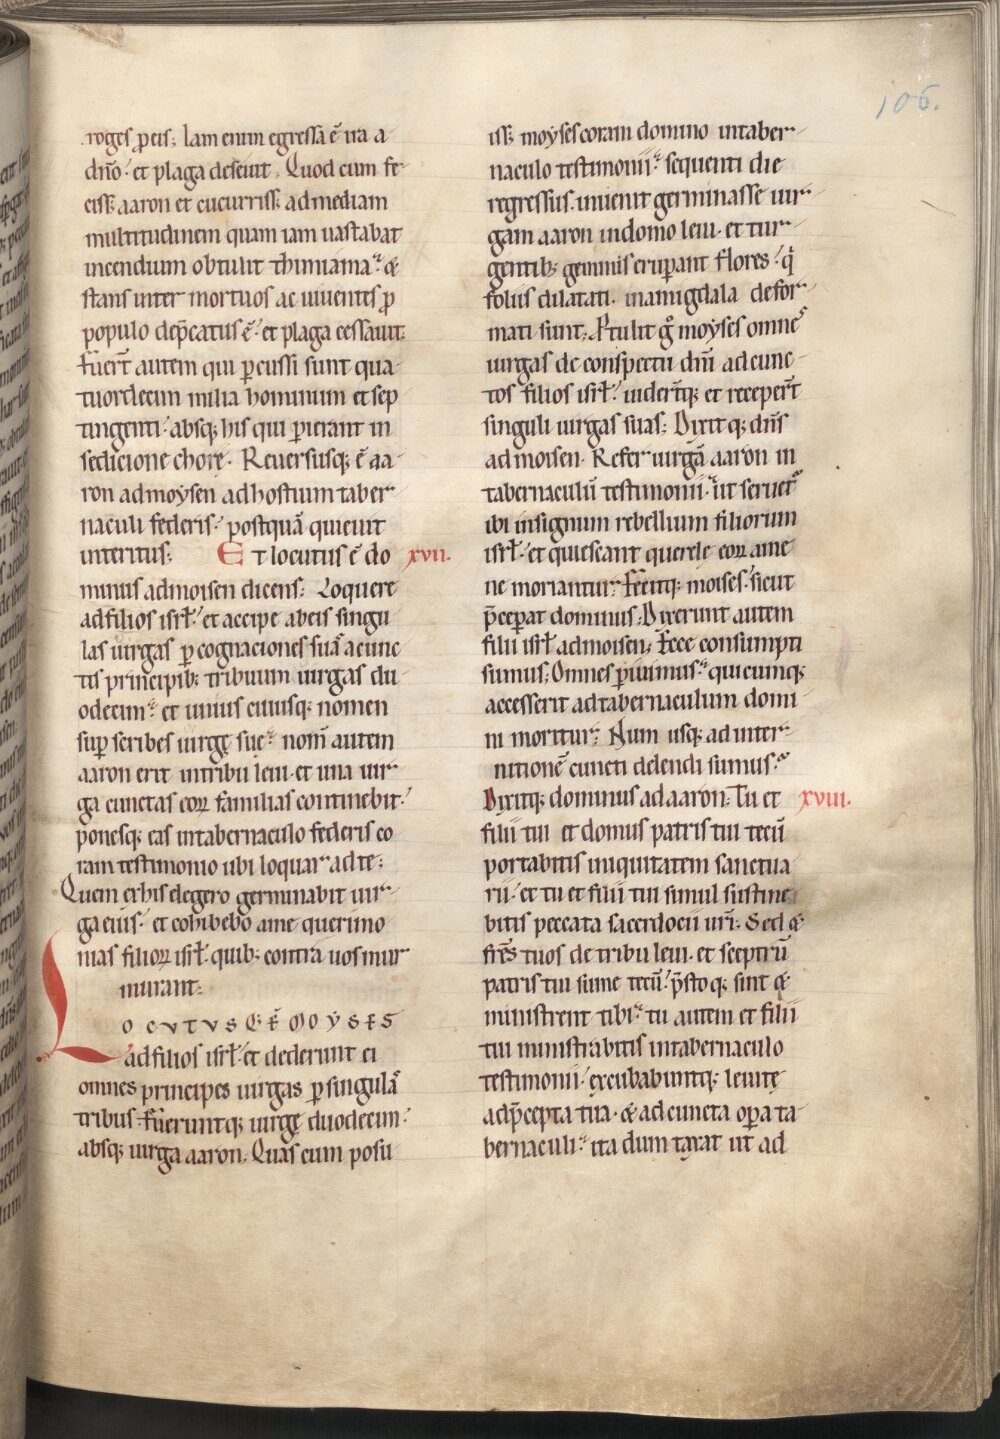 106.
roges ꝑ eis; Iam enim egressa ē ira a
dño᛫ et plaga deseuit. Quod cum fe-
ciss& aaron et cucurriss& ad mediam
multitudinem quam iam uastabat
incendium obtulit thimiama᛫ &
stans inter mortuos ac uiuentes ꝓ
populo dep̄catus ē᛫ et plaga cessauit.
Fuer̄t autem qui ꝑcussi sunt qua-
tuordecim milia hominum et sep
tingenti᛫ absq; his qui ꝑierant in
sedicione chore. Reuersusq; ē aa-
ron ad moysen ad hostium taber-
naculi federis᛫ postquā quieuit
interitus; Et locutus ē do xvii.
minus ad moisen dicens; Loquere
ad filios isrł᛫ et accipe ab eis singu
las uirgas ꝑ cognaciones suas a cunc
tis principib; tribuum uirgas du
odecim᛫ et unius cuiusq; nomen
suꝑ scribes uirgę sue᛫ nom̄ autem
aaron erit in tribu leui. et una uir-
ga cunctas eoꝝ familias continebit᛫
ponesq; eas in tabernaculo federis co
ram testimonio ubi loquar ad te;
Quem ex his elegero germinabit uir-
ga eius᛫ et cohibebo a me querimo
nias filioꝝ isrł. quib; contra uos mur
murant;
LOCUTUS ER̄ MOYSES
ad filios isrł᛫ et dederunt ei
omnes principes uirgas ꝑ singulas
tribus. Fueruntq; uirgę duodecim᛫
absq; uirga aaron; Quas cum posu
iss& moyses coram domino in taber-
naculo testimonii᛫ sequenti die
regressus. inuenit germinasse uir-
gam aaron in domo leui. et tur-
gentib; gemmis eruꝑant flores᛫ q̄
foliis dilatati. in amigdala defor-
mati sunt; Ptulit gͦ moyses omnes
uirgas de conspectu dn̄i ad cunc-
tos filios isrł᛫ uider̄tq; et receper̄t
singuli uirgas suas; Dixitq; dn̄s
ad moisen. Refer uirgā aaron in
tabernaculū testimonii᛫ ut seruet᷑
ibi in signum rebellium filiorum
isrł᛫ et quiescant querele eoꝝ a me
ne moriantur; Fecitq; moises᛫ sicut
p̄ceꝑat dominus; Dixerunt autem
filii isrł ad moisen; Ecce consumpti
sumus; Omnes ꝑiuimus᛫ quicumq;
accesserit ad tabernaculum domi
ni moritur; Num usq; ad inter-
nitionē cuncti delendi sumus᛫
Dixitq; dominus ad aaron; Tu et xviii.
filii tui et domus patris tui tecū
portabitis iniquitatem sanctua
rii᛫ et tu et filii tui simul sustine-
bitis peccata sacerdocii ur̄i; Sed &
fr̄es tuos de tribu leui. et sceptrū
patris tui sume tecū᛫ p̄stoq; sint &
ministrent tibi᛫ tu autem et filii
tui ministrabitis in tabernaculo
testimonii᛫ excubabuntq; leuitę
ad p̄cepta tua. & ad cuncta oꝑa ta-
bernaculi᛫ ita dum taxat ut ad